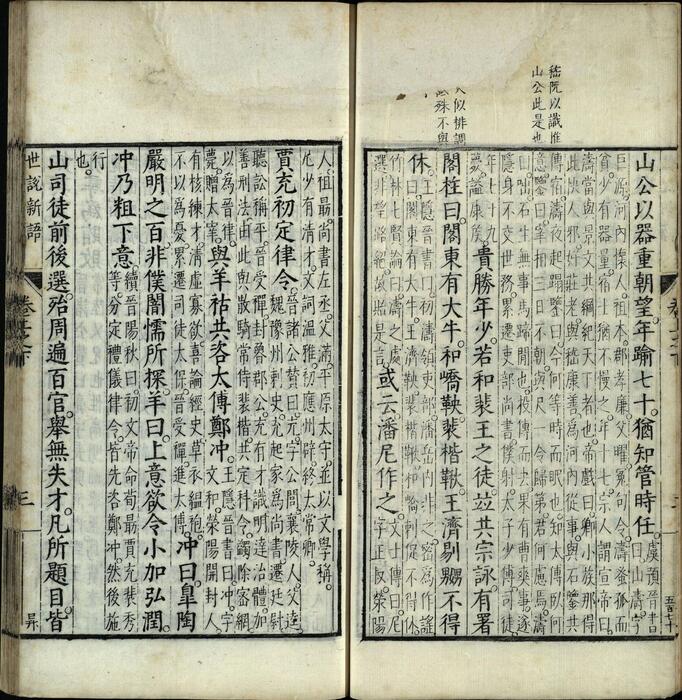 嵇阮以識惟
山公此是也
人似排調
殊不與
山公以器重朝望年踰七十猶知管時任虞預晉書曰山濤字
巨源河内懷人祖本郡孝廉父曜冤句令濤蚤孤而
貧少有器量宿士猶不慢之年十七宗人謂宣帝曰
濤當與景文共綱紀天下者也帝戲曰卿小族那得
此快人邪好莊老與嵇康善為河内從事與石鑒共
傳宿濤夜起蹋鑒曰今何等時而眠也知太傅臥何
意鑒曰宰相三日不朝與尺一令歸第君何慮焉濤
曰咄石生無事馬蹄間也投傳而去果有曹爽事遂
隱身不交世務累遷吏部尚書僕射太子少傅司徒
年七十九
薨謚康侯貴勝年少若和裴王之徒竝共宗詠有署
閣柱曰閣東有大牛和嶠鞅裴楷鞦王濟剔嬲不得
休王隱晉書曰初濤領吏部潘岳内非之密為作謠
曰閣東有大牛王濟鞅裴楷鞦和嶠刺促不得休
竹林七賢論曰濤之處
選非望路絕故貽是言或云潘尼作之文士傳曰尼
字正叔滎陽
人祖最尚書左丞父滿平原太守並以文學稱
尼少有清才文詞溫雅初應州辟終太常卿
賈充初定律令晉諸公贊曰充字公閭襄陵人父逵
魏豫州刺史充起家為尚書遷廷尉
聽訟稱平晉受禪封魯郡公充有才識明達治體加
善刑法由此與散騎常侍裴楷共定科令蠲除密網
以為晉律
薨贈太宰與羊祜共咨太傅鄭冲王隱晉書曰冲字
文和滎陽開封人
有核練才清虛寡欲喜論經史草衣縕袍
不以為憂累遷司徒太保晉受禪進太傅冲曰皐陶
嚴明之旨非僕闇懦所探羊曰上意欲令小加弘潤
冲乃粗下意續晉陽秋曰初文帝命荀勗賈充裴秀
等分定禮儀律令皆先咨鄭冲然後施
行
也
山司徒前後選殆周遍百官舉無失才凡所題目皆
世說新語
三